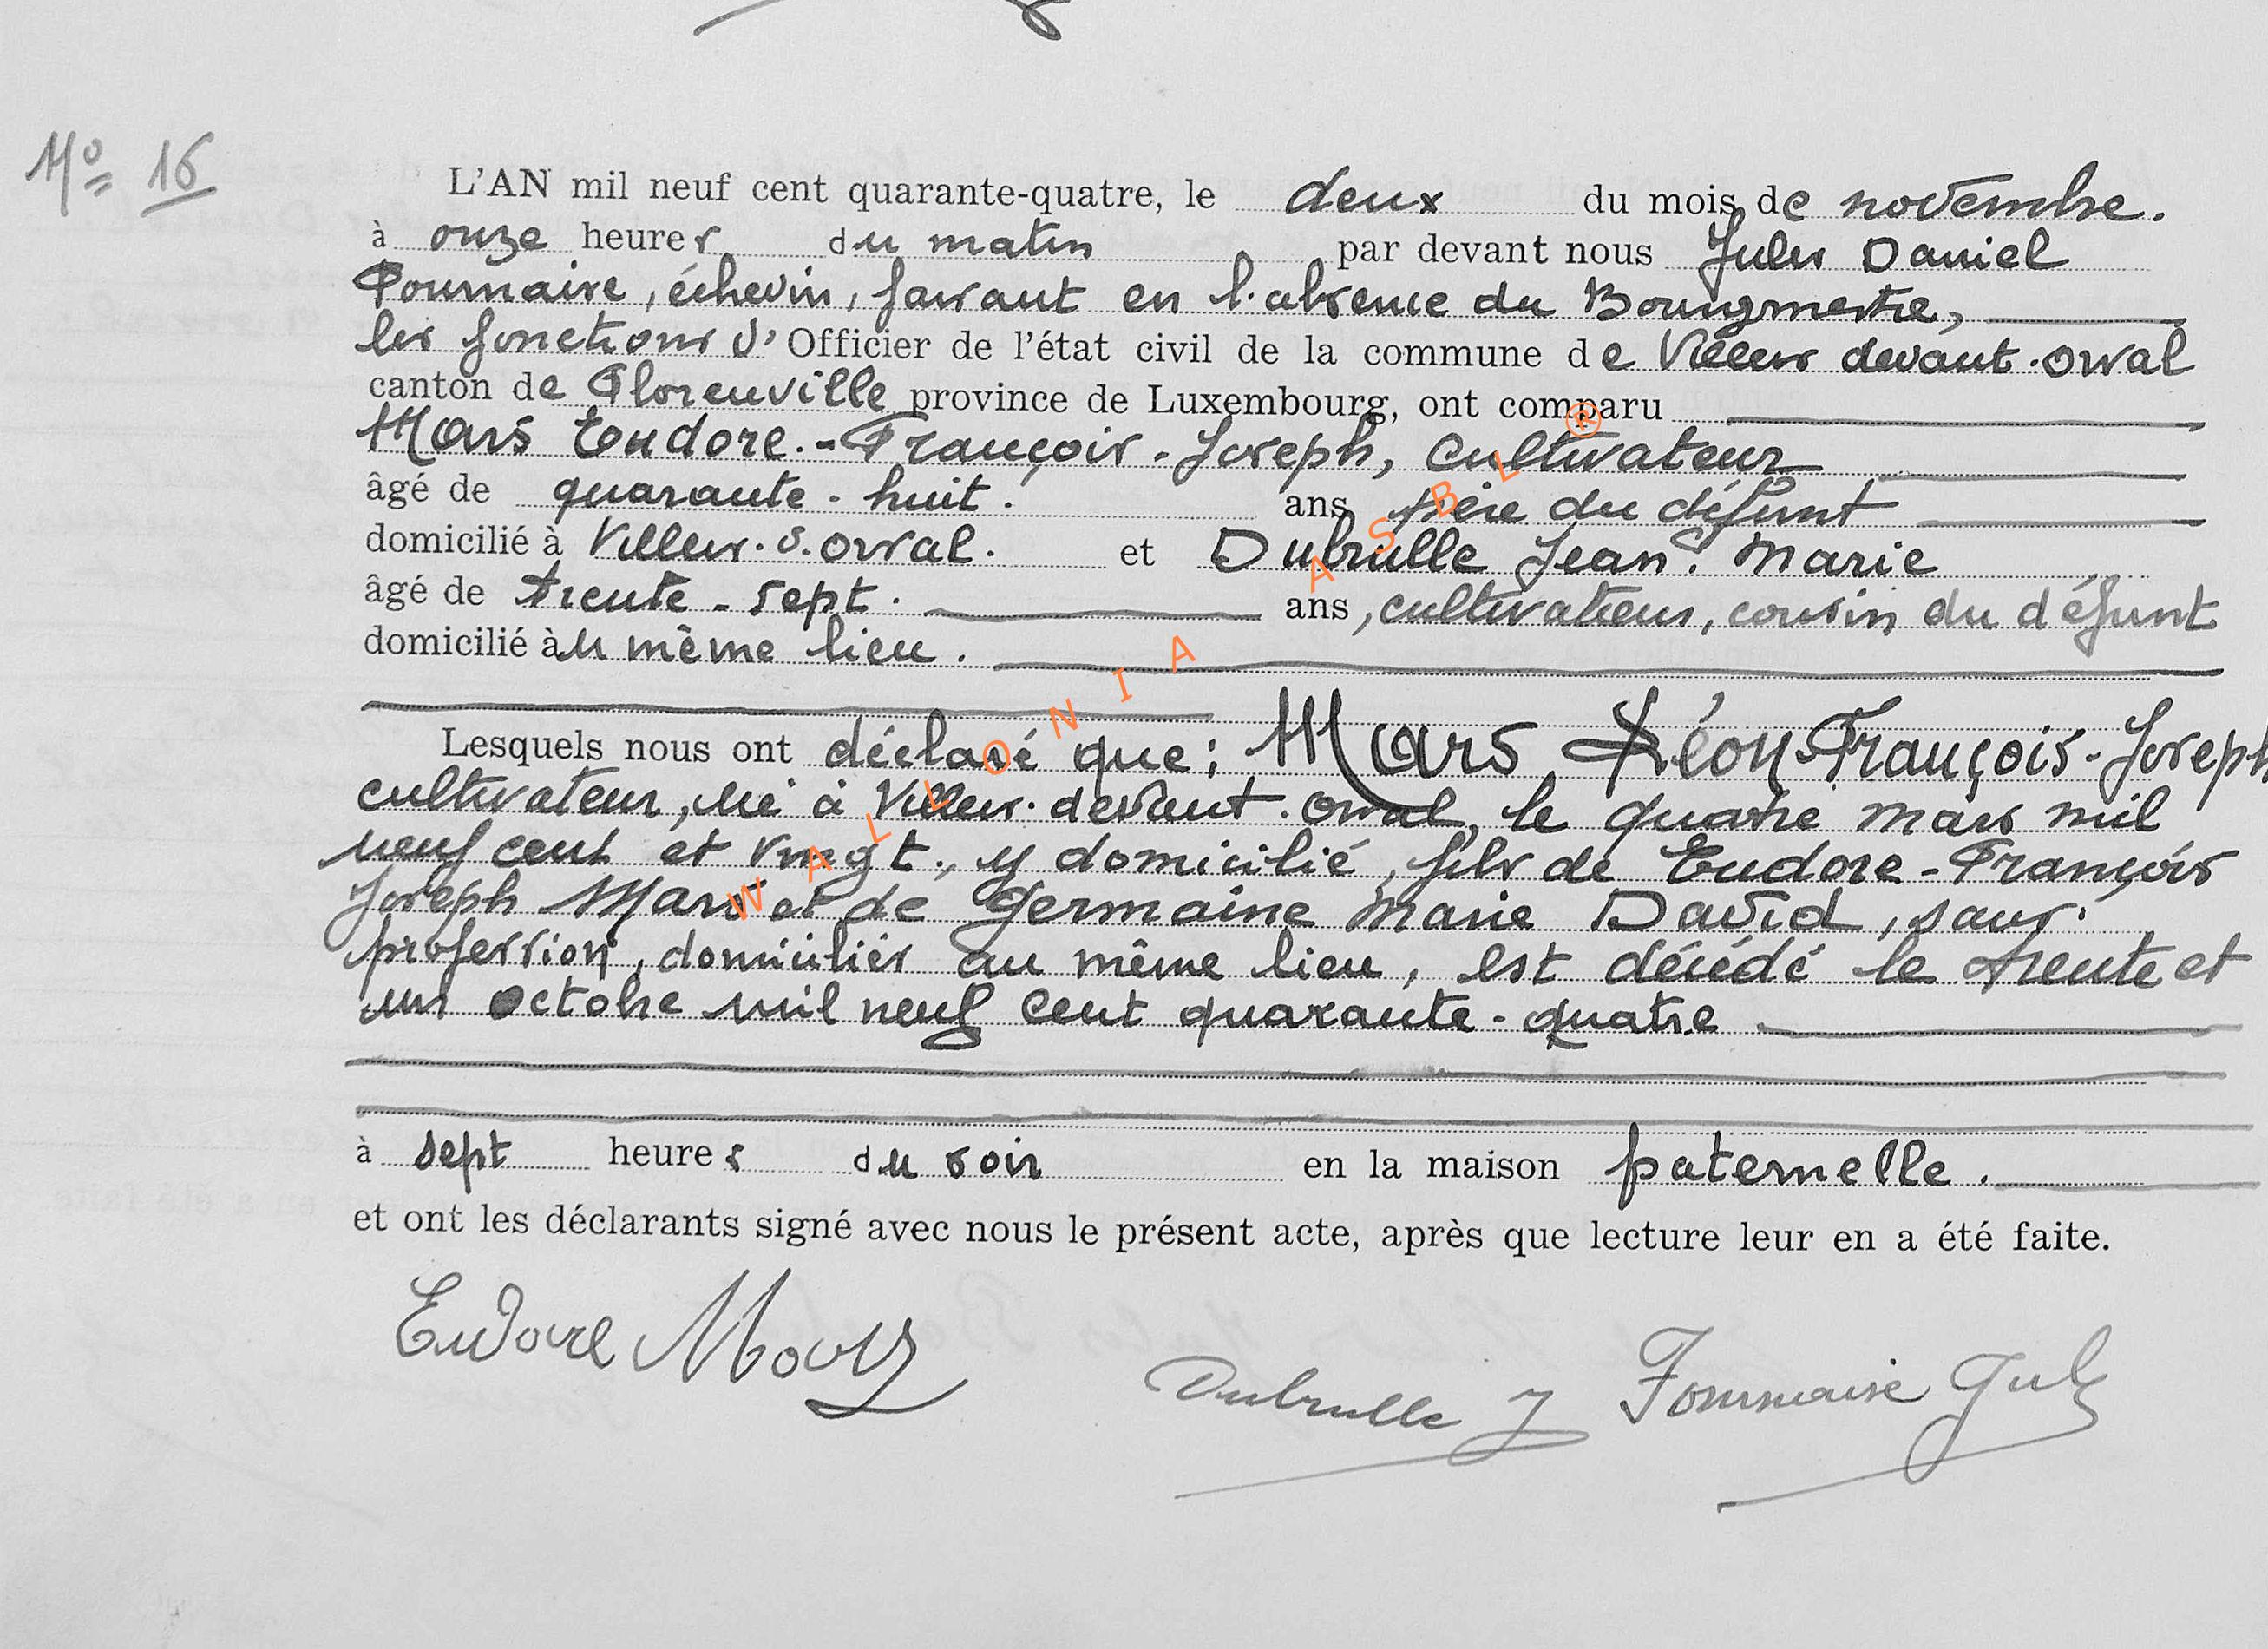 N° 16
L'AN mil neuf cent quarante-quatre, le deux du mois de novembre.
à onze heures du matin par devant nous Jules Daniel
Fournaire, échevin, faisant en l'absence du Bourgmestre,
les fonctions d'Officier de l'état civil de la commune de Villers devant-Orval
canton de Florenville province de Luxembourg, ont comparu
Mars Eudore-François-Joseph, cultivateur
âgé de quarante-huit ans père du défunt
domicilié à Villers-d.Orval. et Dubrulle Jean-Marie
âgé de trente-sept. ans, cultivateur, cousin du défunt
domicilié au même lieu.
Lesquels nous ont déclaré que; Mars Léon-François-Joseph
cultivateur, né à Villers-devant-Orval, le quatre mars mil
neuf cent et vingt, y domicilié, fils de Eudore-François
Joseph Mars et de Germaine Marie David, sans
profession, domiciliés au même lieu, est décédé le trente et
un octobre mil neuf cent quarante-quatre
à sept heures du soir en la maison paternelle.
et ont les déclarants signé avec nous le présent acte, après que lecture leur en a été faite.
Eudore Mars Dubrulle J Fournaire Jules
WALLONIA ASBL ®